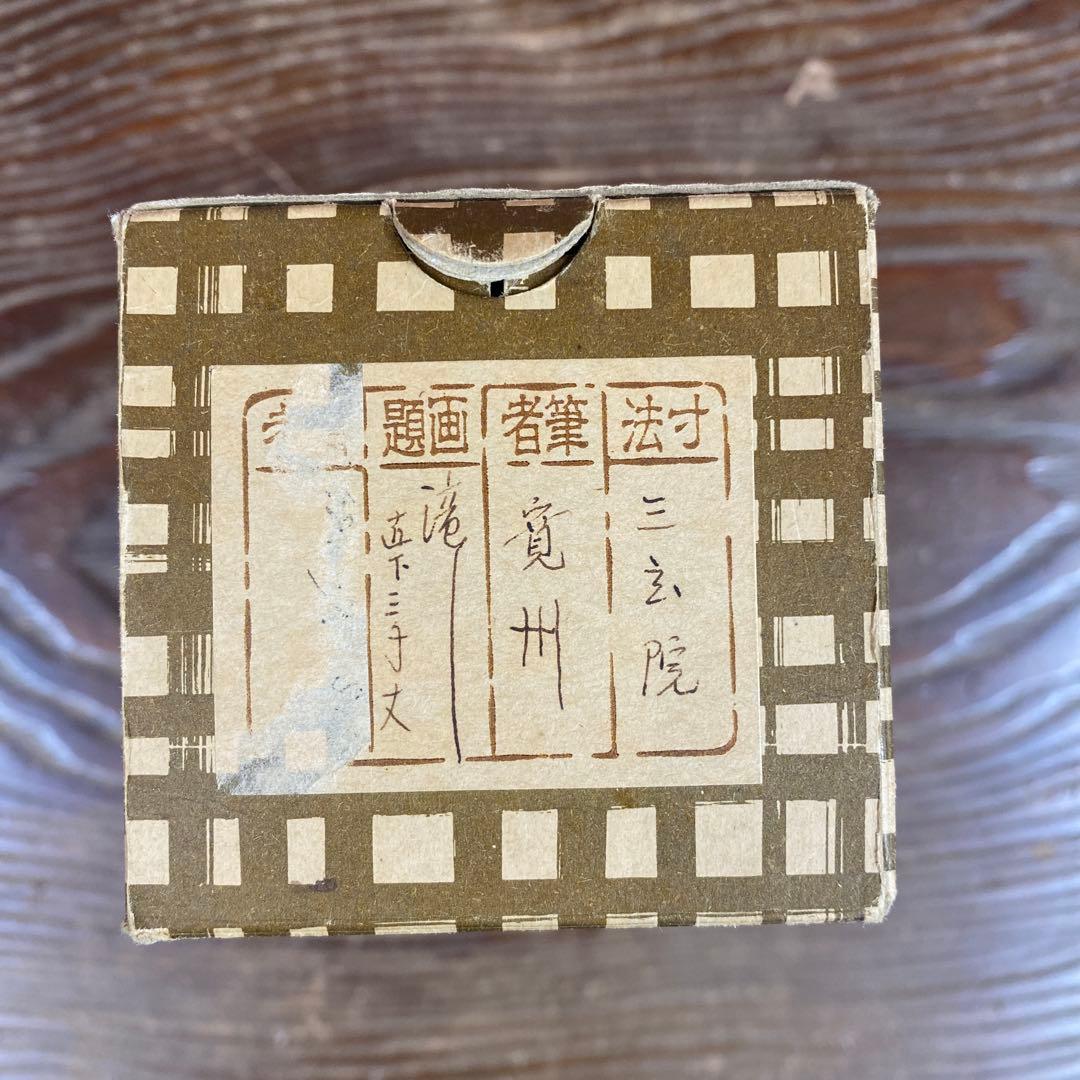 寸法
三玄院
筆者
寛州
画題
滝
直下三千丈